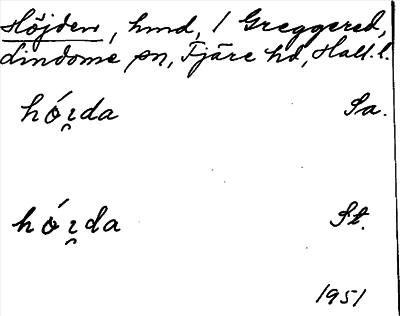 Höjden, hmd, / Greggered,
Lindome sn, Fjäre hd, Hall. l.
hó̤ɩ̯da Sa.
hó̤ɩ̯da St.
1951